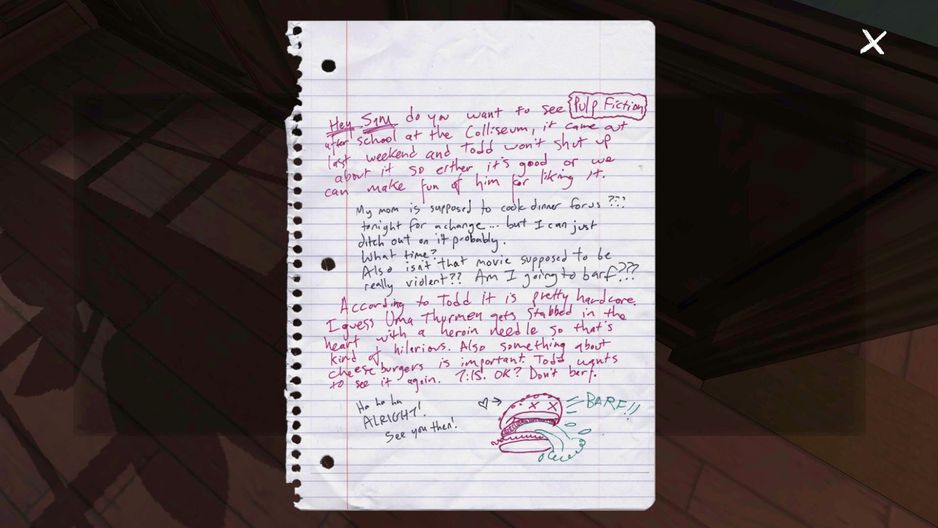 Hey Sam do you want to see Pulp Fiction
after school at the Colliseum, it came out
last weekend and Todd won't shut up
about it so either it's good or we
can make fun of him for liking it.
My mom is supposed to cook dinner for us ???
tonight for a change... but I can just
ditch out on it probably.
What time?
Also isn't that movie supposed to be
really violent?? Am I going to barf???
According to Todd it is pretty hardcore,
I guess Uma Thurmen gets stabbed in the
heart with a heroin needle so that's
kind of hilarious. Also something about
cheeseburgers is important. Todd wants
to see it again. 7:15. OK? Don't barf.
Ha ha ha
ALRIGHT!
See you then!
BARF!!
X